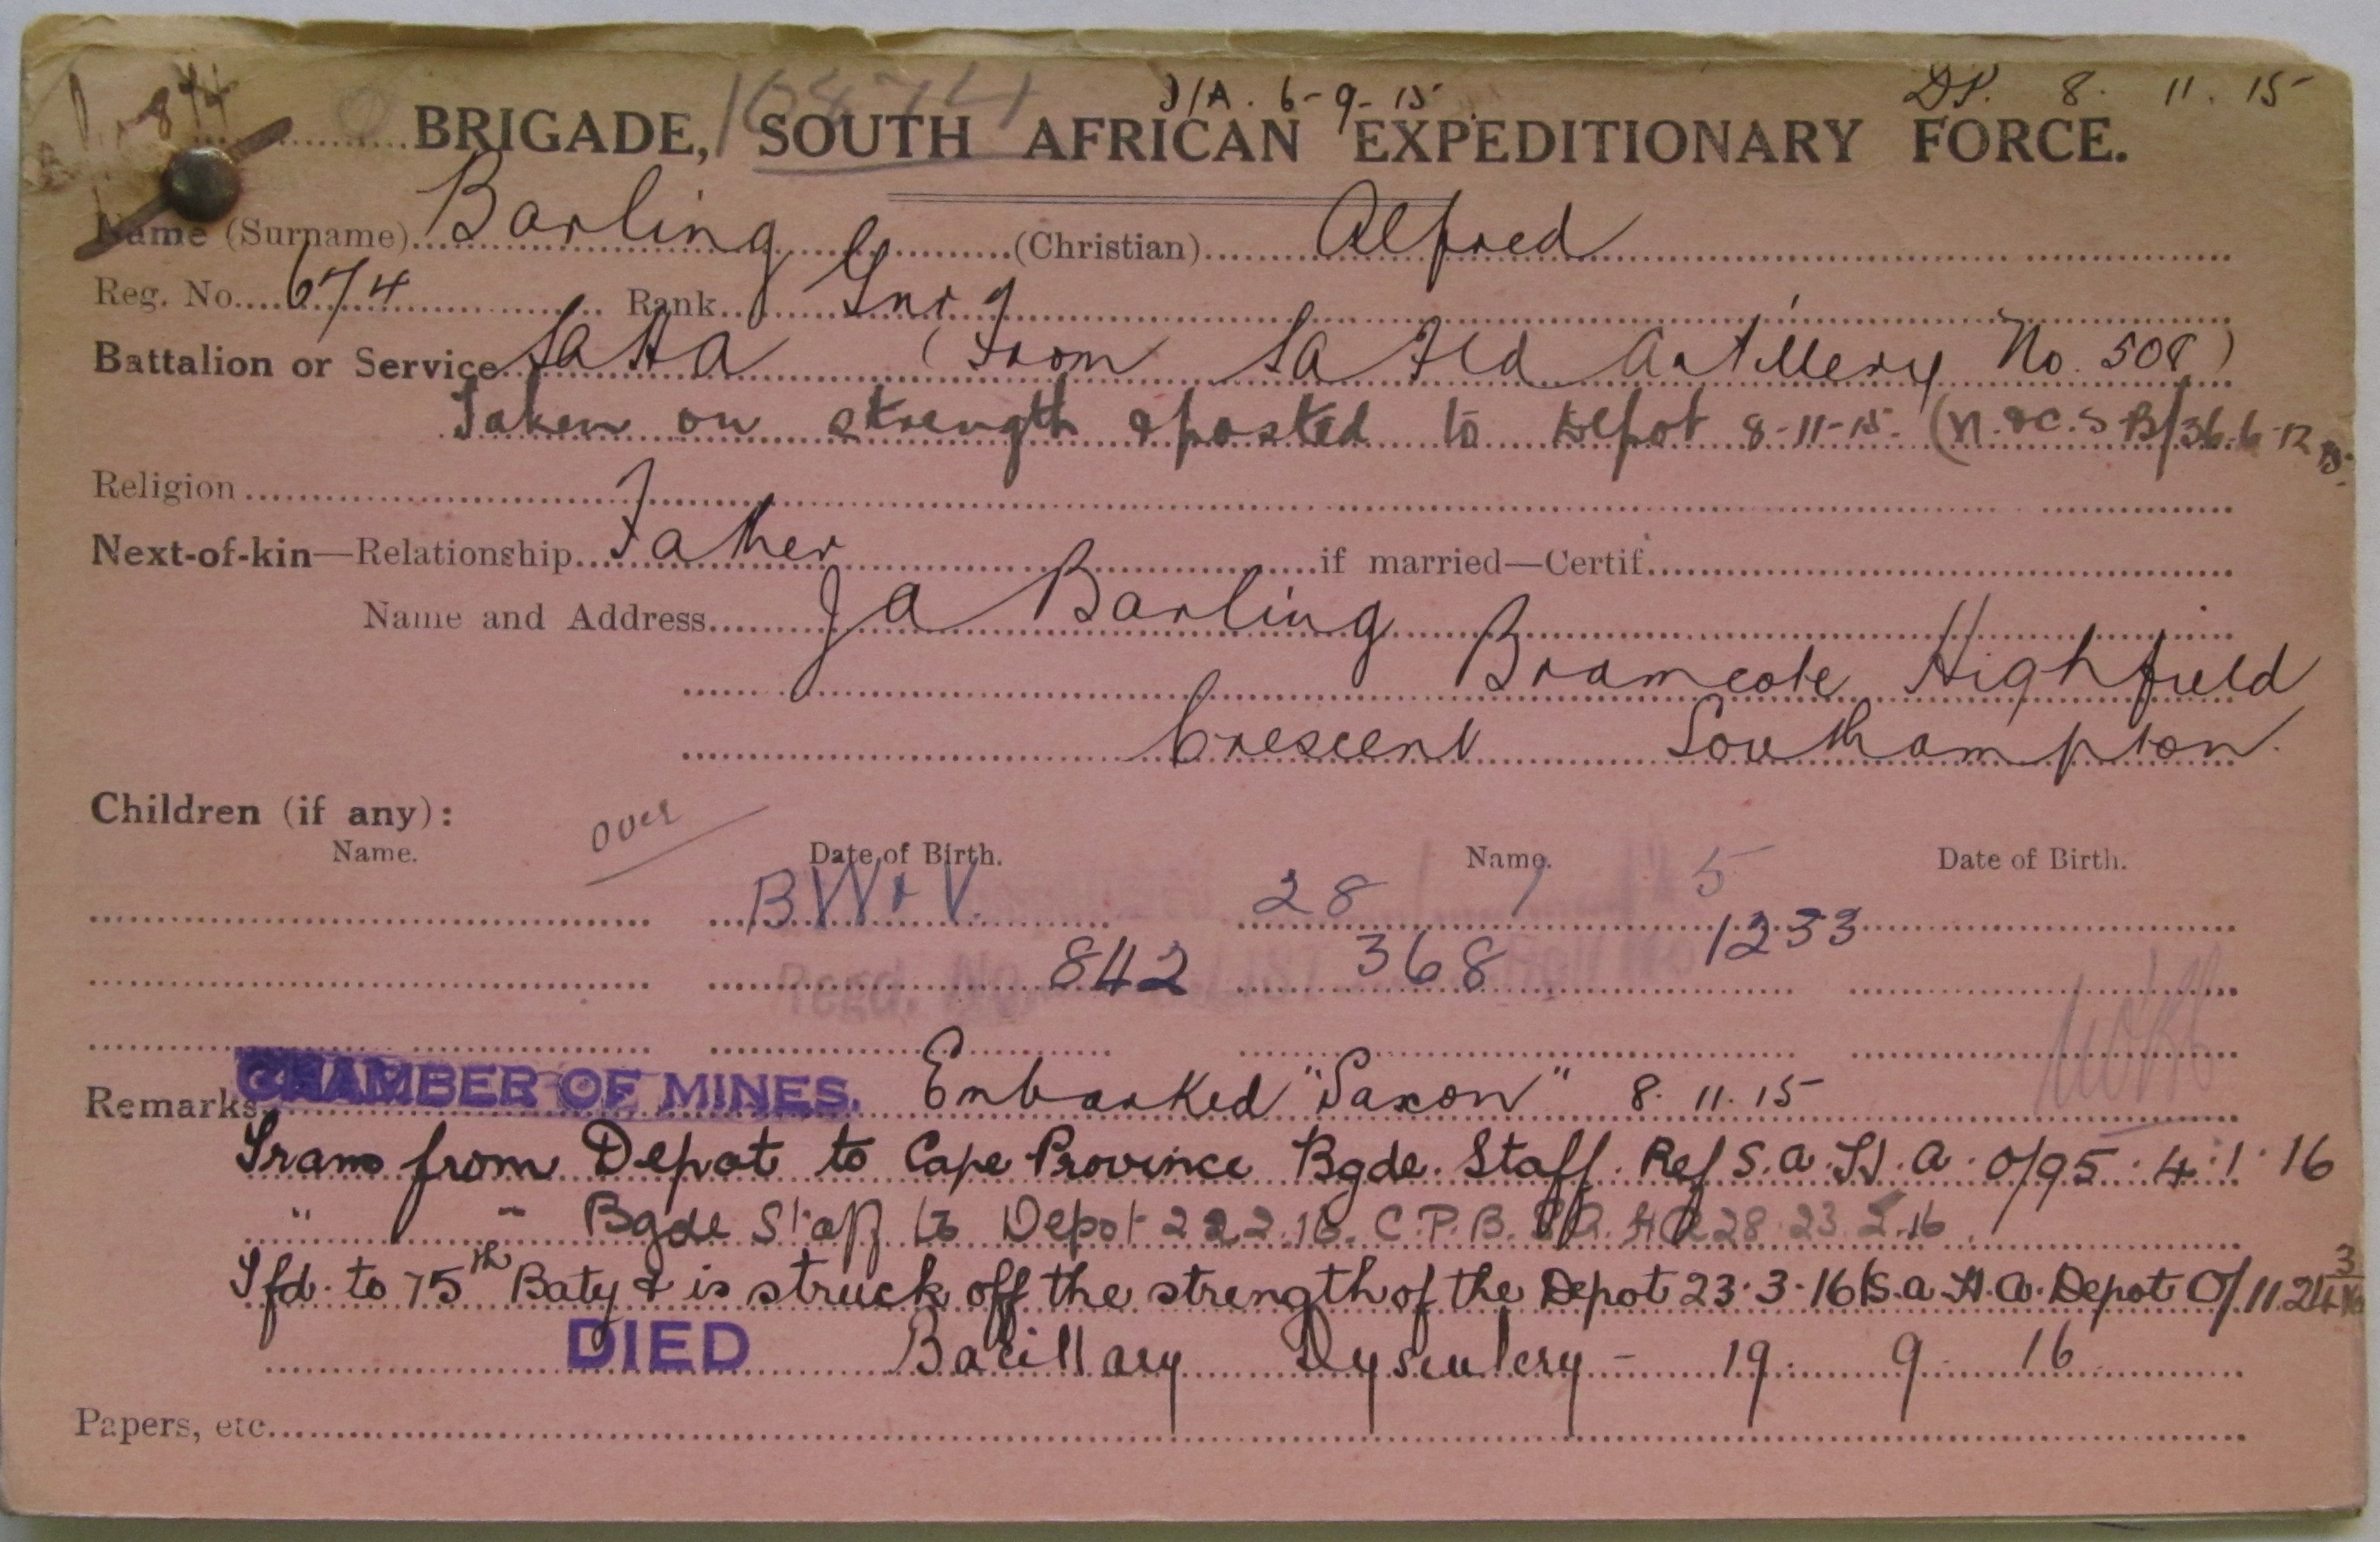 874 10874 D/A. 6-9-15 DP. 8. 11. 15
BRIGADE, SOUTH AFRICAN EXPEDITIONARY FORCE.
Name (Surname) Barling (Christian) Alfred
Reg. No. 674 Rank Gnr
Battalion or Service SAHA (From SA Fld Artillery No. 508)
Taken on strength & posted to Depot 8-11-15. (N.&C.S B/36. 6-12 15.
Religion
Next-of-kin—Relationship Father if married—Certif.
Name and Address J A Barling
Bramcote Highfield
Crescent Southampton.
Children (if any):
over
Name. Date of Birth. Name. Date of Birth.
BW & V. 28 1 5
1233
Regd. No. 842 LIST 368 Roll No
Remarks CHAMBER OF MINES. Embarked "Saxon" 8. 11. 15
Trans from Depot to Cape Province Bgde. Staff. Ref S.A.H.A. O/95. 4. 1. 16
" " Bgde Staff to Depot 22.2.16. C.P.B. S.A.HA 28. 23 2 16
Tfd. to 75th Baty & is struck off the strength of the Depot 23.3.16 (S.A.H.A. Depot O/11. 24 3/16
DIED Bacillary Dysentery - 19. 9. 16
Papers, etc.